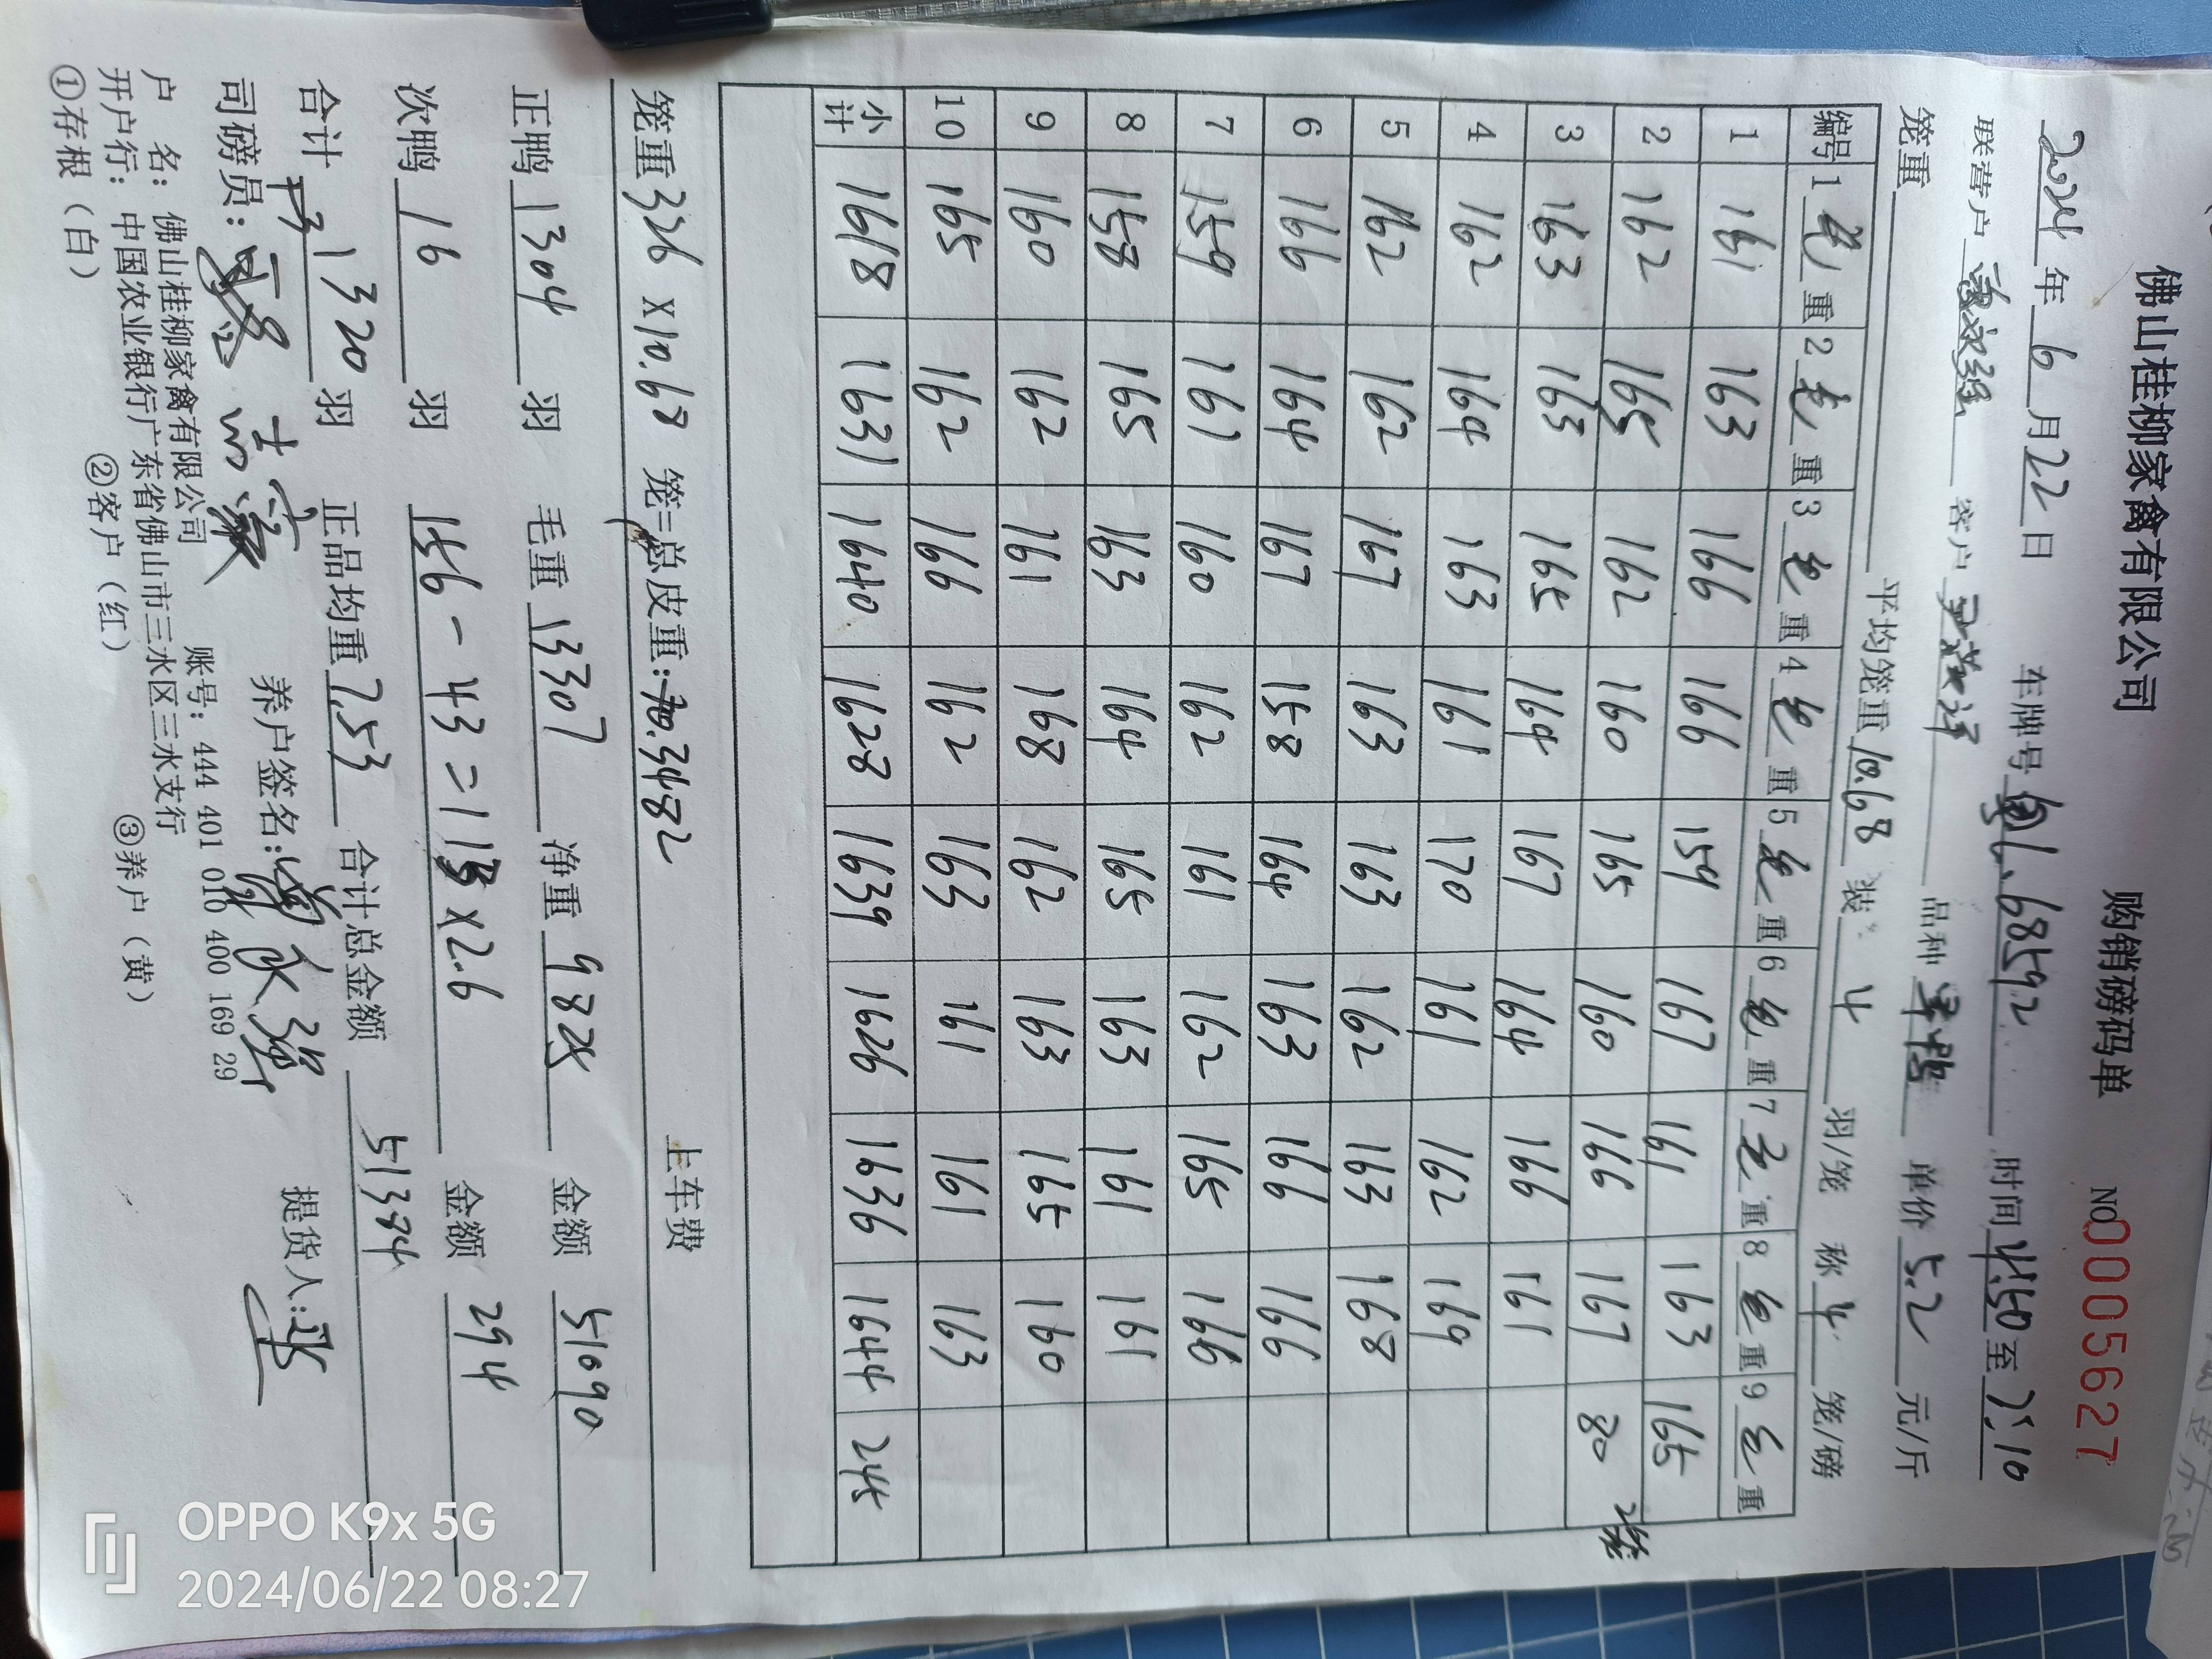 佛山桂柳家禽有限公司 购销磅码单 NO 0005627
2024年6月22日 车牌号 L.68592 时间 4:50至7:10
联营户 客户 品种 单价 5.2 元/斤
笼重 平均笼重 10.68 装 4 羽/笼 称 4 笼/磅
编号 1 毛 重 2 毛 重 3 毛 重 4 毛 重 5 毛 重 6 毛 重 7 毛 重 8 毛 重 9 毛 重
1 161 163 166 166 159 167 161 163 165
2 162 165 162 160 165 160 166 167 80 2笼
3 163 163 165 164 167 164 166 161
4 162 164 163 161 170 161 162 169
5 162 162 167 163 163 162 163 168
6 166 164 167 158 164 163 166 166
7 159 161 160 162 161 162 165 166
8 158 165 163 164 165 163 161 161
9 160 162 161 168 162 163 165 160
10 165 162 166 162 163 161 161 163
小计 1618 1631 1640 1628 1639 1626 1636 1644 245
笼重 326 X10.68 笼=总皮重: 3482 上车费
正鸭 1304 羽 毛重 13307 净重 9825 金额 51090
次鸭 16 羽 156-43=113×2.6 金额 294
合计 1320 羽 正品均重 7.53 合计总金额 51384
司磅员: 养户签名: 提货人:
户 名: 佛山桂柳家禽有限公司 账号: 444 401 010 400 169 29
开户行: 中国农业银行广东省佛山市三水区三水支行
①存根(白) ②客户(红) ③养户(黄)
OPPO K9x 5G
2024/06/22 08:27